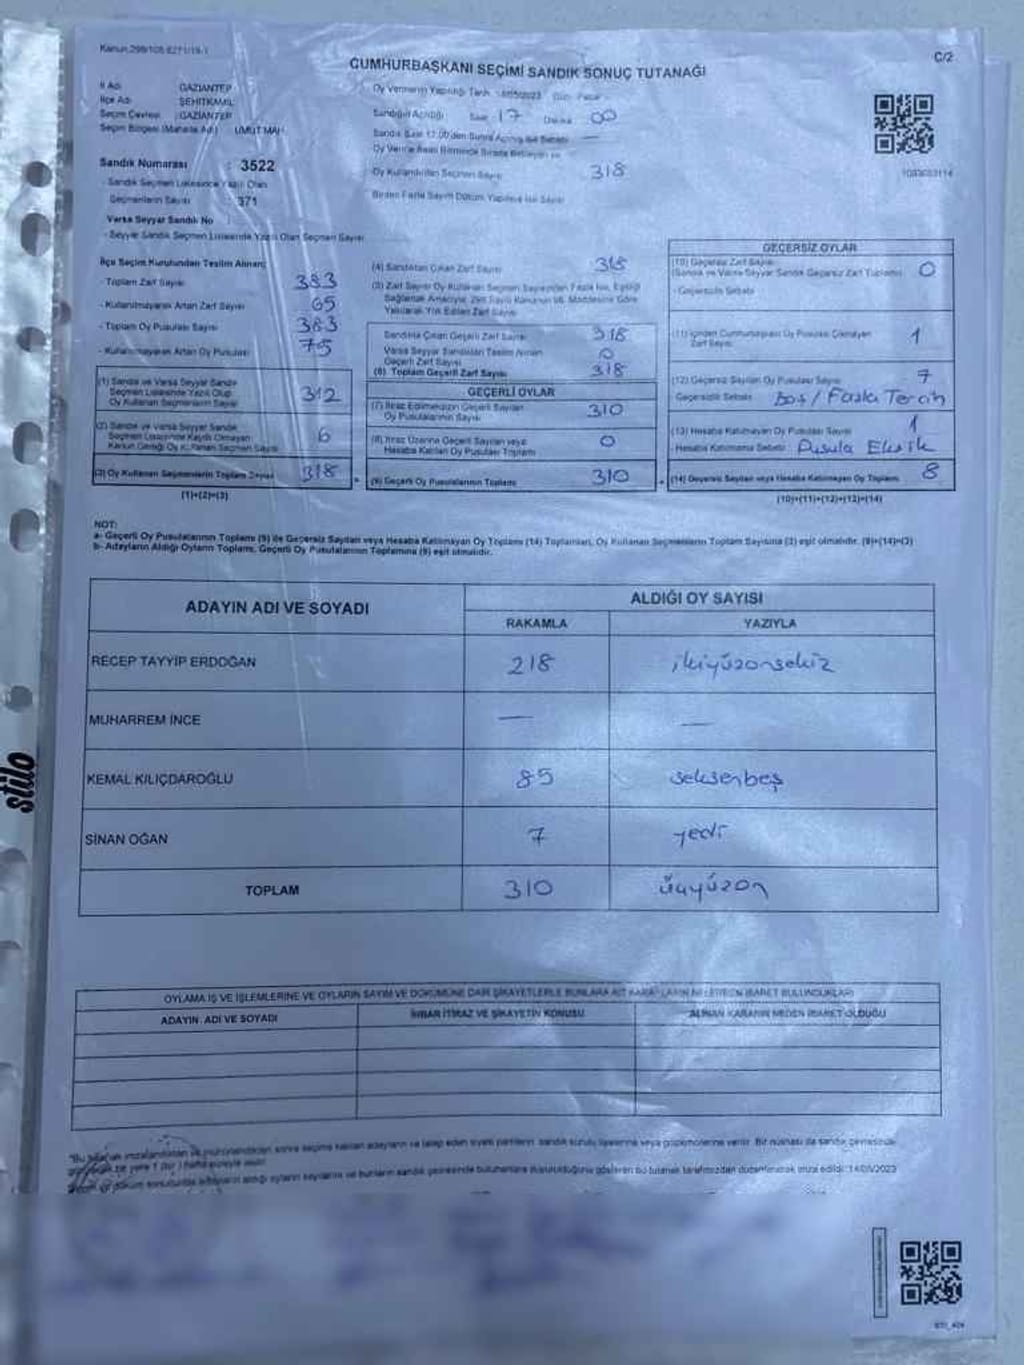 Kanun:298/105 6271/19-1
C/2
CUMHURBAŞKANI SEÇİMİ SANDIK SONUÇ TUTANAĞI
İl Adı : GAZİANTEP
İlçe Adı : ŞEHİTKAMİL
Seçim Çevresi : GAZİANTEP
Seçim Bölgesi (Mahalle Adı) : UMUT MAH.
Oy Vermenin Yapıldığı Tarih : 14/05/2023 Gün : Pazar
Sandığın Açıldığı Saat : 17 Dakika : 00
Sandık Saat 17.00'den Sonra Açılmış ise Sebebi —
Oy Kullandırılan Seçmen Sayısı 318
Birden Fazla Sayım Döküm Yapılmış ise Sayısı
Sandık Numarası : 3522
- Sandık Seçmen Listesinde Yazılı Olan
Seçmenlerin Sayısı : 371
Varsa Seyyar Sandık No :
- Seyyar Sandık Seçmen Listesinde Yazılı Olan Seçmen Sayısı
İlçe Seçim Kurulundan Teslim Alınan;
- Toplam Zarf Sayısı 383
- Kullanılmayarak Artan Zarf Sayısı 65
- Toplam Oy Pusulası Sayısı 383
- Kullanılmayarak Artan Oy Pusulası 75
(1) Sandık ve Varsa Seyyar Sandık
Seçmen Listesinde Yazılı Olup
Oy Kullanan Seçmenlerin Sayısı 312
(2) Sandık ve Varsa Seyyar Sandık
Seçmen Listesinde Kayıtlı Olmayan
Kanun Gereği Oy Kullanan Seçmen Sayısı 6
(3) Oy Kullanan Seçmenlerin Toplam Sayısı 318
(1)+(2)=(3)
(4) Sandıktan Çıkan Zarf Sayısı 318
(5) Zarf Sayısı Oy Kullanan Seçmen Sayısından Fazla ise, Eşitliği
Sağlamak Amacıyla, 298 Sayılı Kanunun 98. Maddesine Göre
Yakılarak Yok Edilen Zarf Sayısı
Sandıkta Çıkan Geçerli Zarf Sayısı 318
Varsa Seyyar Sandıktan Teslim Alınan
Geçerli Zarf Sayısı 0
(6) Toplam Geçerli Zarf Sayısı 318
GEÇERLİ OYLAR
(7) İtiraz Edilmeksizin Geçerli Sayılan
Oy Pusulalarının Sayısı 310
(8) İtiraz Üzerine Geçerli Sayılan veya
Hesaba Katılan Oy Pusulası Toplamı 0
(9) Geçerli Oy Pusulalarının Toplamı 310
GEÇERSİZ OYLAR
(10) Geçersiz Zarf Sayısı
(Sandık ve Varsa Seyyar Sandık Geçersiz Zarf Toplamı) 0
- Geçersizlik Sebebi
(11) İçinden Cumhurbaşkanı Oy Pusulası Çıkmayan
Zarf Sayısı 1
(12) Geçersiz Sayılan Oy Pusulası Sayısı 7
- Geçersizlik Sebebi Boş / Fazla Tercih
(13) Hesaba Katılmayan Oy Pusulası Sayısı 1
- Hesaba Katılmama Sebebi Pusula Eksik
(14) Geçersiz Sayılan veya Hesaba Katılmayan Oy Toplamı 8
(10)+(11)+(12)+(13)=(14)
NOT:
a- Geçerli Oy Pusulalarının Toplamı (9) ile Geçersiz Sayılan veya Hesaba Katılmayan Oy Toplamı (14) Toplamları, Oy Kullanan Seçmenlerin Toplam Sayısına (3) eşit olmalıdır. (9)+(14)=(3)
b- Adayların Aldığı Oyların Toplamı, Geçerli Oy Pusulalarının Toplamına (9) eşit olmalıdır.
ADAYIN ADI VE SOYADI ALDIĞI OY SAYISI
RAKAMLA YAZIYLA
RECEP TAYYİP ERDOĞAN 218 ikiyüzonsekiz
MUHARREM İNCE — —
KEMAL KILIÇDAROĞLU 85 seksenbeş
SİNAN OĞAN 7 yedi
TOPLAM 310 üçyüzon
OYLAMA İŞ VE İŞLEMLERİNE VE OYLARIN SAYIM VE DÖKÜMÜNE DAİR ŞİKAYETLERLE BUNLARA AİT KARARLARIN NELERDEN İBARET BULUNDUKLARI
ADAYIN ADI VE SOYADI İHBAR İTİRAZ VE ŞİKAYETİN KONUSU ALINAN KARARIN NEDEN İBARET OLDUĞU
stilo